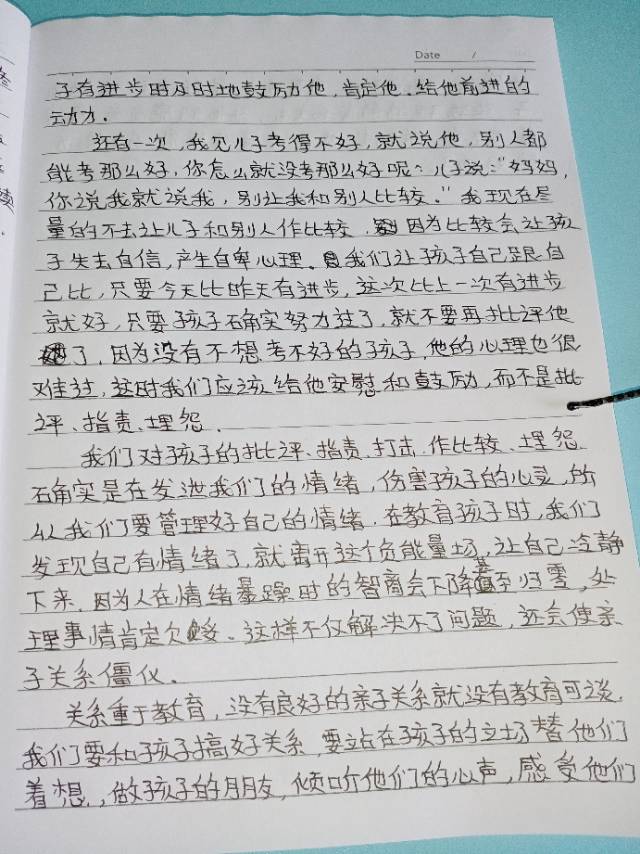 Date /
子有进步时及时地鼓励他，肯定他，给他前进的
动力。
还有一次，我见儿子考得不好，就说他，别人都
能考那么好，你怎么就没考那么好呢？儿子说："妈妈，
你说我就说我，别让我和别人比较。"我现在尽
量的不去让儿子和别人作比较，因为比较会让孩
子失去自信，产生自卑心理。我们让孩子自己跟自
己比，只要今天比昨天有进步，这次比上一次有进步
就好，只要孩子确实努力过了，就不要再批评他
了，因为没有不想考不好的孩子，他的心理也很
难过，这时我们应该给他安慰和鼓励，而不是批
评、指责、埋怨。
我们对孩子的批评、指责、打击、作比较、埋怨
确实是在发泄我们的情绪，伤害孩子的心灵，所
以我们要管理好自己的情绪。在教育孩子时，我们
发现自己有情绪了，就离开这个负能量场，让自己冷静
下来，因为人在情绪暴躁时的智商会下降甚至归零，处
理事情肯定欠妥。这样不仅解决不了问题，还会使亲
子关系僵化。
关系重于教育，没有良好的亲子关系就没有教育可谈。
我们要和孩子搞好关系，要站在孩子的立场替他们
着想，做孩子的朋友，倾听他们的心声，感受他们